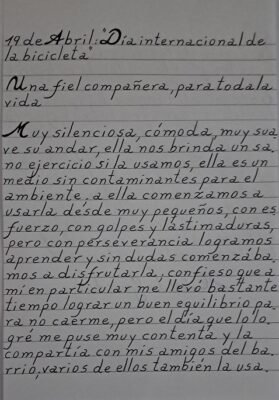 19 de Abril: "Día internacional de
la bicicleta"
Una fiel compañera, para toda la
vida
Muy silenciosa, cómoda, muy sua
ve su andar, ella nos brinda un sa.
no ejercicio si la usamos, ella es un
medio sin contaminantes para el
ambiente, a ella comenzamos a
usarla desde muy pequeños, con es
fuerzo, con golpes y lastimaduras,
pero con perseverancia logramos
aprender y sin dudas comenzába.
mos a disfrutarla, confieso que a
mí en particular me llevó bastante
tiempo lograr un buen equilibrio pa.
ra no caerme, pero el día que lo lo.
gré me puse muy contenta y la
compartía con mis amigos del ba.
rrio, varios de ellos también la usa.